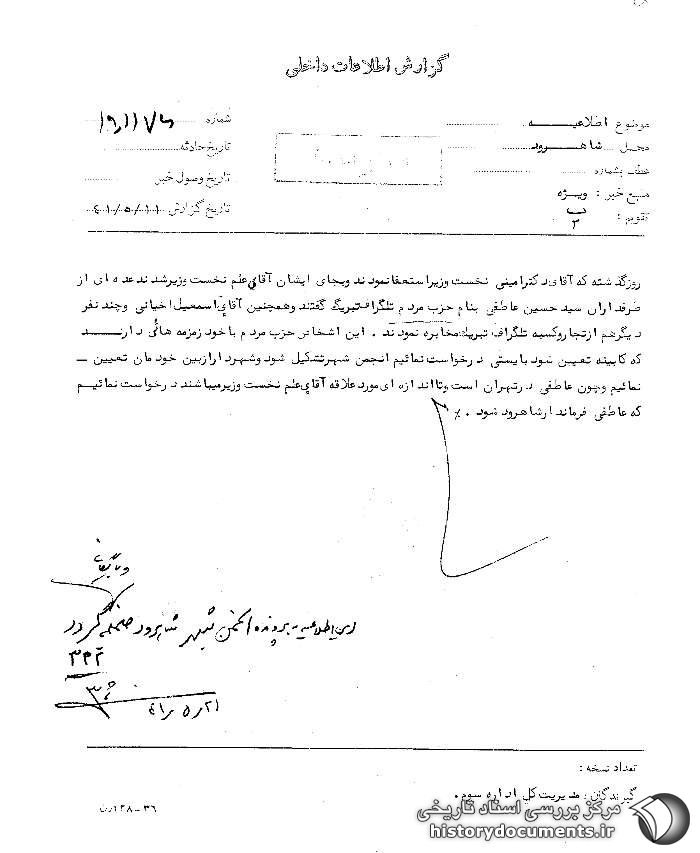 گزارش اطلاعات داخلی
موضوع اطلاعیـــــه
شماره
محـل شاهـــرود
تاریخ حادثه
عطف بشماره
تاریخ وصول خبر
منبع خبر : ویژه
تاریخ گزارش ۴۱/۵/۱۱
تقویم : ب
۲
روزگذشته که آقای دکترامینی نخست وزیراستعفا نمودند وبجای ایشان آقای علم نخست وزیرشدند عده ای از
طرفداران سید حسین عاطفی بنام حزب مردم تلگراف تبریک گفتند وهمچنین آقای اسمعیل اخیانی وچند نفر
دیگرهم ازتجاروکسبه تلگراف تبریک مخابره نمودند . این اشخاص حزب مردم باخود زمزمه هائی دارنـــد
که کابینه تعیین شود بایستی درخواست نمائیم انجمن شهرتشکیل شود وشهردارازبین خودمان تعیین ــ
نمائیم وچون عاطفی درتهران است وتااندازه ای موردعلاقه آقای علم نخست وزیرمیباشند درخواست نمائیـم
که عاطفی فرماندارشاهرود شود . ٪
بایگانی
این اطلاعیه به پرونده انجمن شهر شاهرود ضمیمه گردد
۳۲۲
۲۱ر۵ر۴۱
تعداد نسخه :
گیرندگان : مدیریت کل اداره سوم .
۳۶ - ۱۲۸
مرکز بررسی اسناد تاریخی
historydocuments.ir